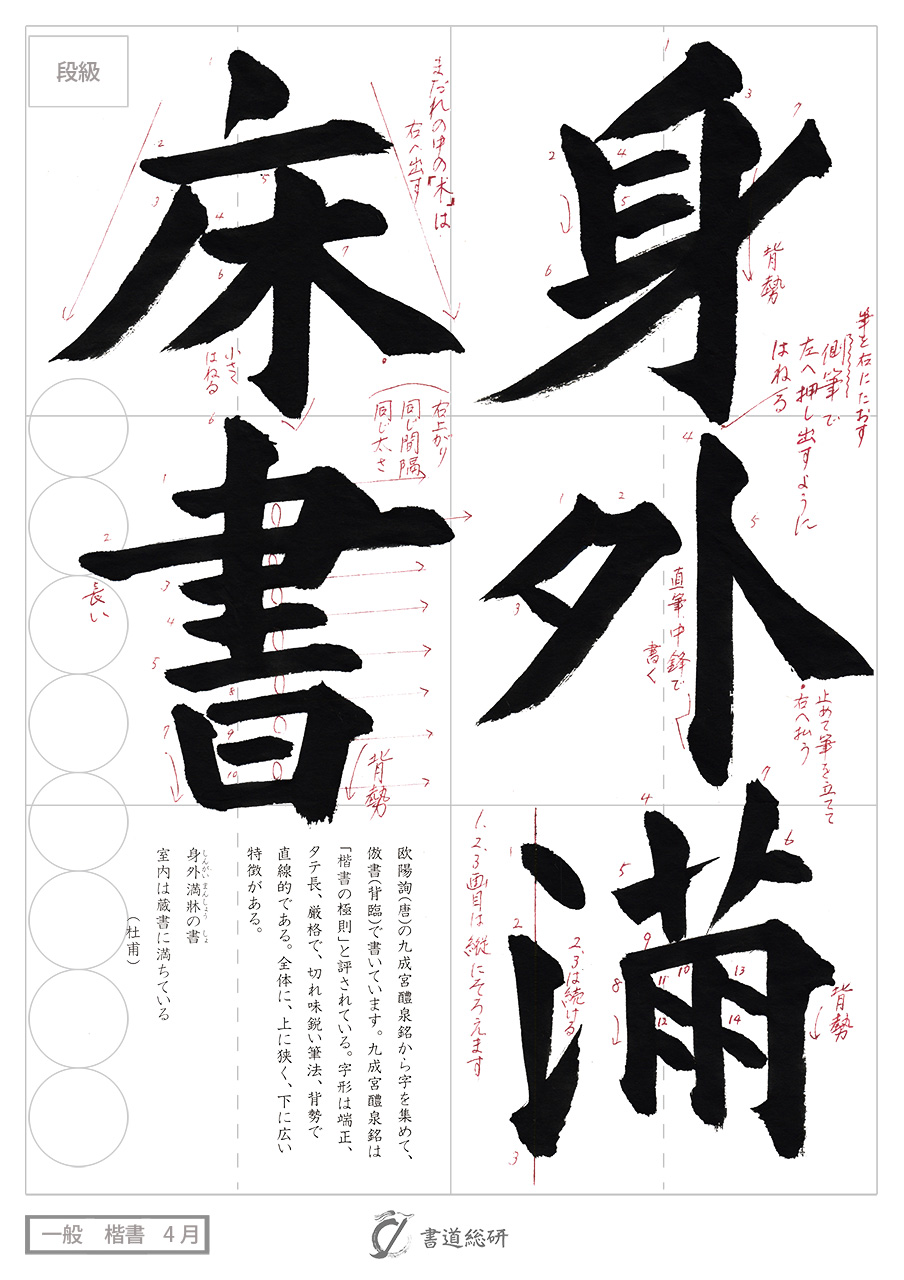 段級
身
外
満
床
書
背勢
筆を右にたおす
側筆で
左へ押し出すように
はねる
直筆中鋒で
書く
止めて筆を立てて
右へ払う
1.2.3画目は縦にそろえます
2.3は続ける
背勢
まだれの中の「木」は
右へ出す
小さく
はねる
右上がり
同じ間隔
同じ太さ
長い
背勢
欧陽詢(唐)の九成宮醴泉銘から字を集めて、
倣書(背臨)で書いています。九成宮醴泉銘は
「楷書の極則」と評されている。字形は端正、
タテ長、厳格で、切れ味鋭い筆法、背勢で
直線的である。全体に、上に狭く、下に広い
特徴がある。
身外満牀の書
しんがいまんしょう しょ
室内は蔵書に満ちている
(杜甫)
一般 楷書 4月
書道総研